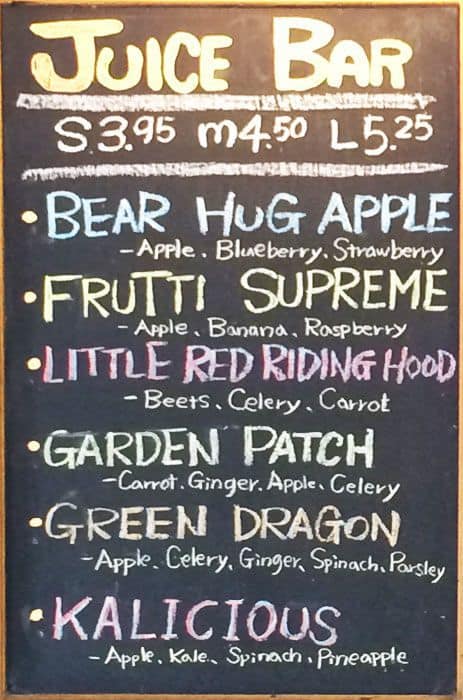 JUICE BAR
S 3.95 m 4.50 L 5.25
• BEAR HUG APPLE
- Apple, Blueberry, Strawberry
• FRUTTI SUPREME
- Apple, Banana, Raspberry
• LITTLE RED RIDING HOOD
- Beets, Celery, Carrot
• GARDEN PATCH
- Carrot, Ginger, Apple, Celery
• GREEN DRAGON
- Apple, Celery, Ginger, Spinach, Parsley
• KALICIOUS
- Apple, Kale, Spinach, Pineapple